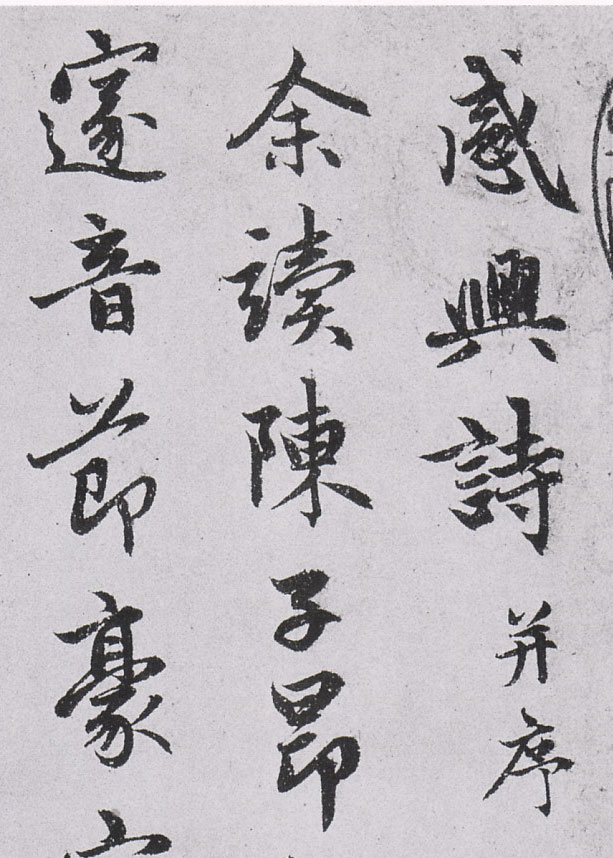 感興詩并序
余讀陳子昂
邃音節豪